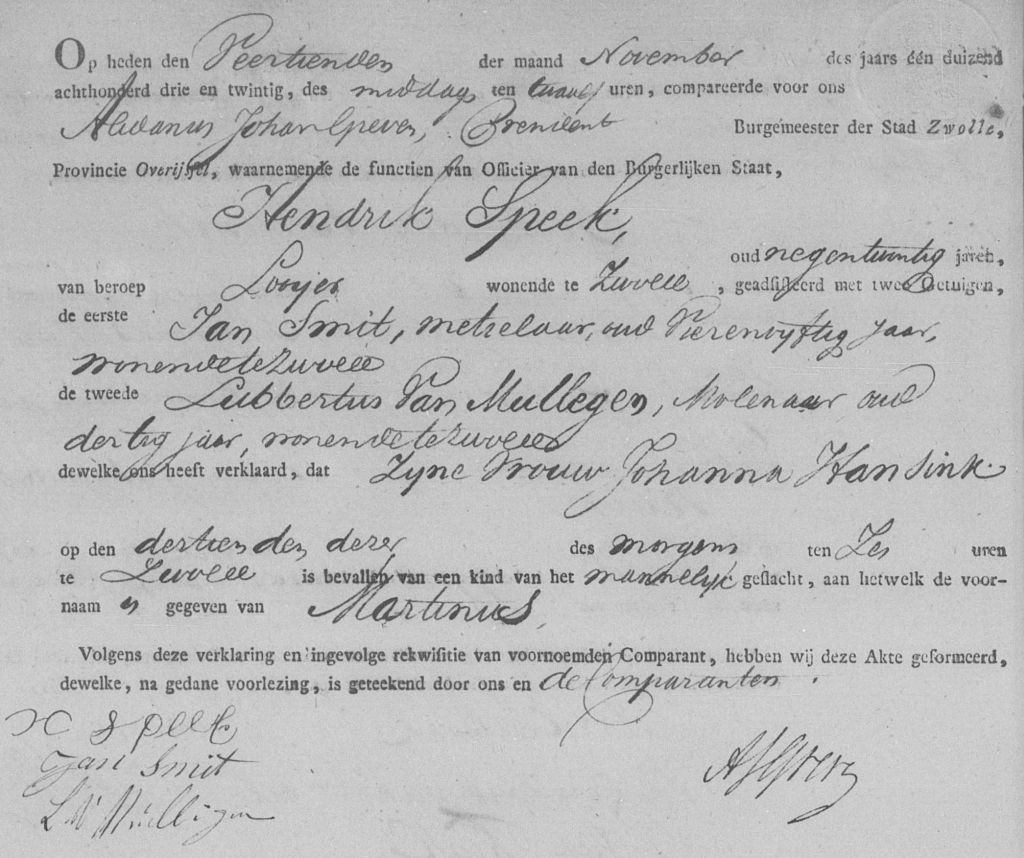 Op heden den Veertienden der maand November des jaars één duizend
achthonderd drie en twintig, des middags ten twaalf uren, compareerde voor ons
Johan President Burgemeester der Stad Zwolle,
Provincie Overijssel, waarnemende de functien van Officier van den Burgerlijken Staat,
Hendrik Speek,
oud negentwintig jaren,
van beroep Looijer wonende te Zwolle, geadsisteerd met twee Getuigen,
de eerste Jan Smit, metselaar, oud Vierenvyftig jaar,
wonende te Zwolle
de tweede Lubbertus Van Mullegen, Molenaar oud
dertig jaar, wonende te Zwolle
dewelke ons heeft verklaard, dat Zyne Vrouw Johanna Hansink
op den dertienden dezer des morgens ten Zes uren
te Zwolle is bevallen van een kind van het mannelyk geslacht, aan hetwelk de voor-
naam is gegeven van Martinus,
Volgens deze verklaring en ingevolge rekwisitie van voornoemden Comparant, hebben wij deze Akte geformeerd,
dewelke, na gedane voorlezing, is geteekend door ons en de Comparanten.
H Speek
Jan Smit